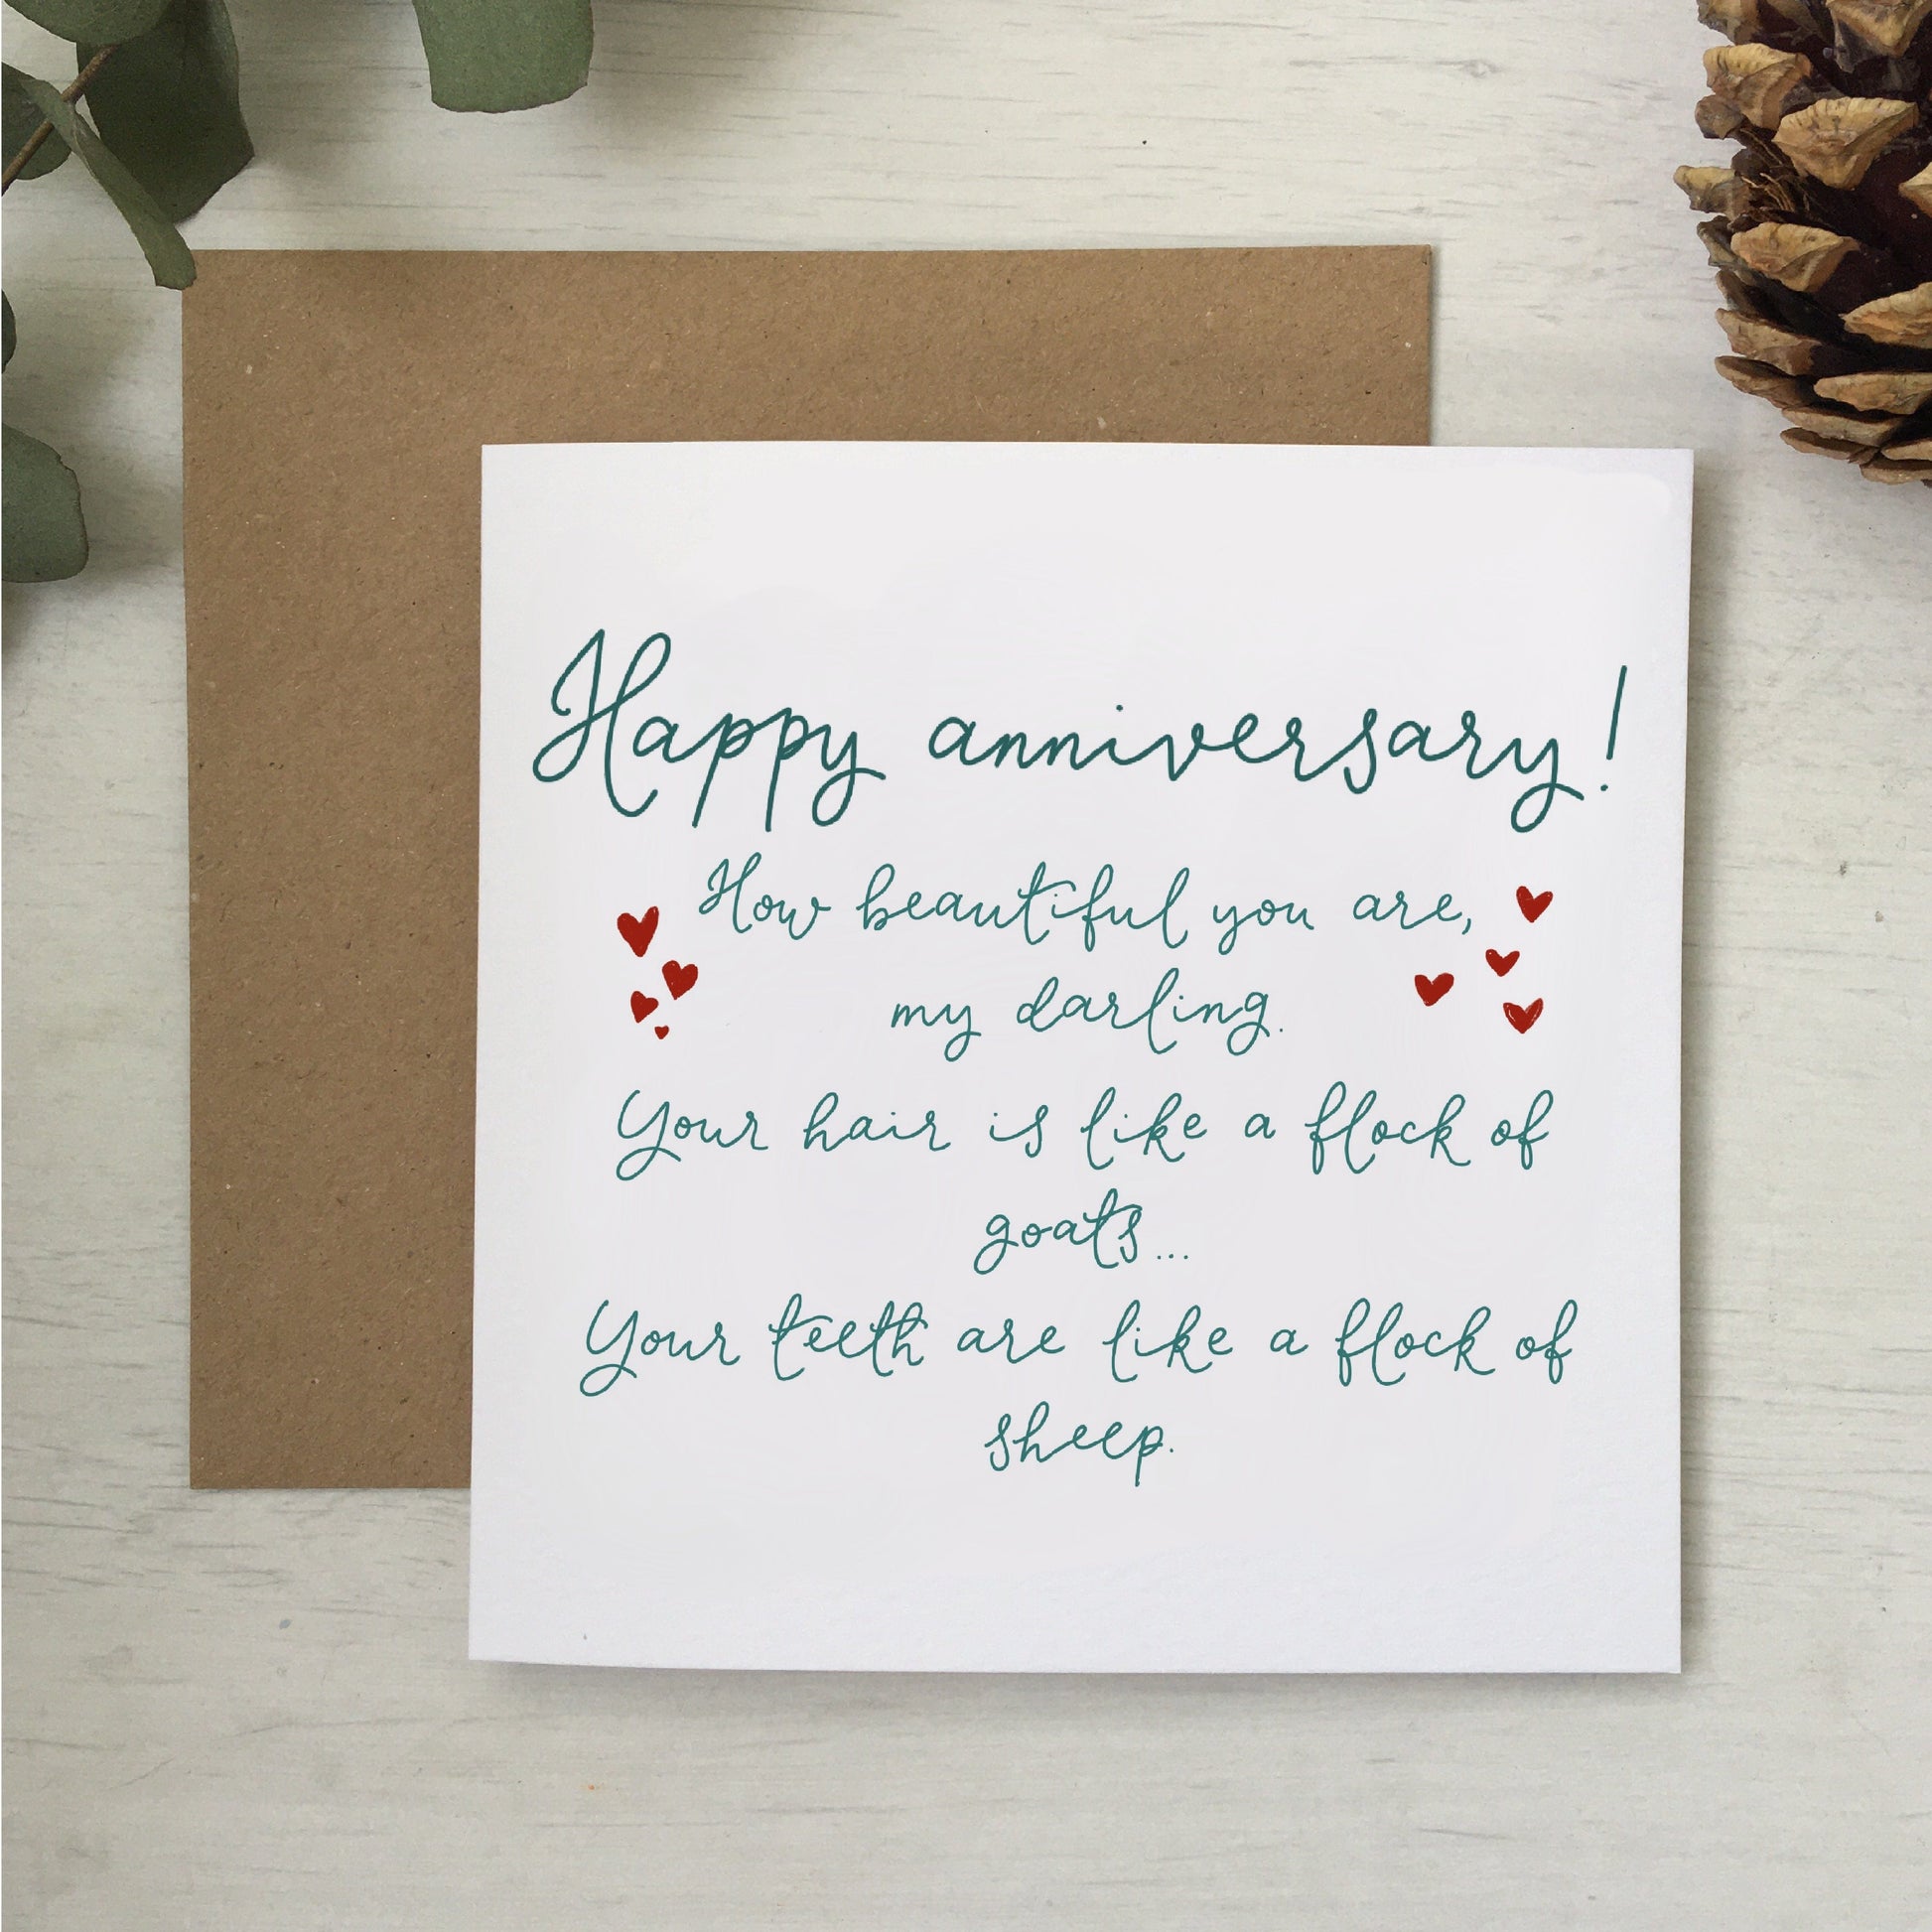 Happy anniversary!
How beautiful you are,
my darling.
Your hair is like a flock of
goats...
Your teeth are like a flock of
sheep.